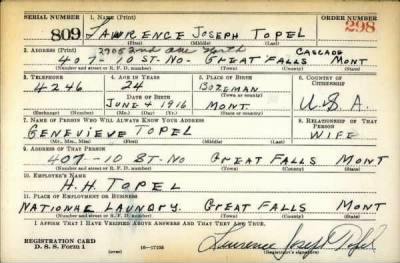 SERIAL NUMBER 1. Name (Print) ORDER NUMBER
809 LAWRENCE JOSEPH TOPEL 298
(First) (Middle) (Last)
2. Address (Print) 2905 2nd Ave North CASCADE
407-10 ST. NO. GREAT FALLS MONT
(Number and street or R. F. D. number) (Town) (County) (State)
3. Telephone 4. Age in Years 5. Place of Birth 6. Country of Citizenship
4246 24 BOZEMAN
Date of Birth (Town or county)
JUNE 4 1916 MONT U.S.A.
(Exchange) (Number) (Mo.) (Day) (Yr.) (State or country)
7. Name of Person Who Will Always Know Your Address 8. Relationship of That Person
GENEVIEVE TOPEL WIFE
(Mr., Mrs., Miss) (First) (Middle) (Last)
9. Address of That Person
407-10 ST. NO GREAT FALLS MONT
(Number and street or R. F. D. number) (Town) (County) (State)
10. Employer's Name
H. H. TOPEL
11. Place of Employment or Business
NATIONAL LAUNDRY. GREAT FALLS MONT
(Number and street or R. F. D. number) (Town) (County) (State)
I Affirm That I Have Verified Above Answers and That They Are True.
REGISTRATION CARD
D. S. S. Form 1 16-17105 Lawrence Joseph Topel
(Registrant's signature)